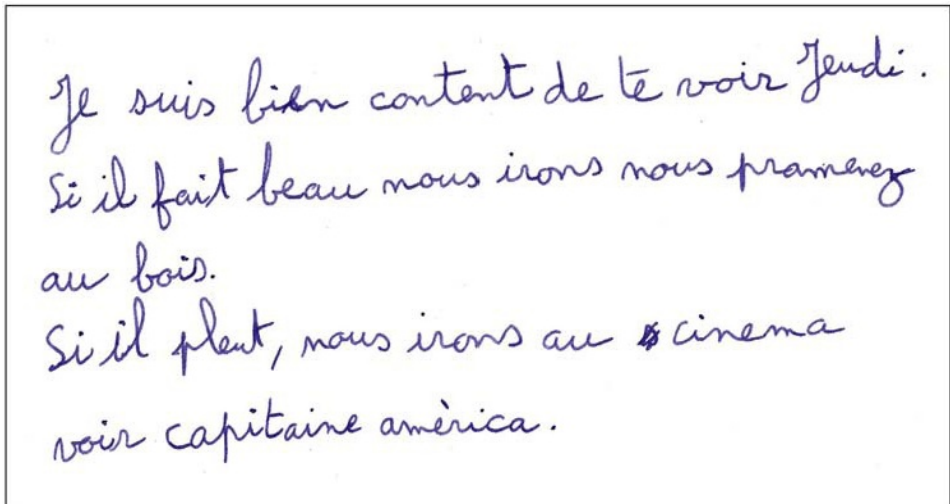 Je suis bien content de te voir Jeudi.
Si il fait beau nous irons nous pramenez
au bois.
Si il pleut, nous irons au cinema
voir capitaine amèrica.